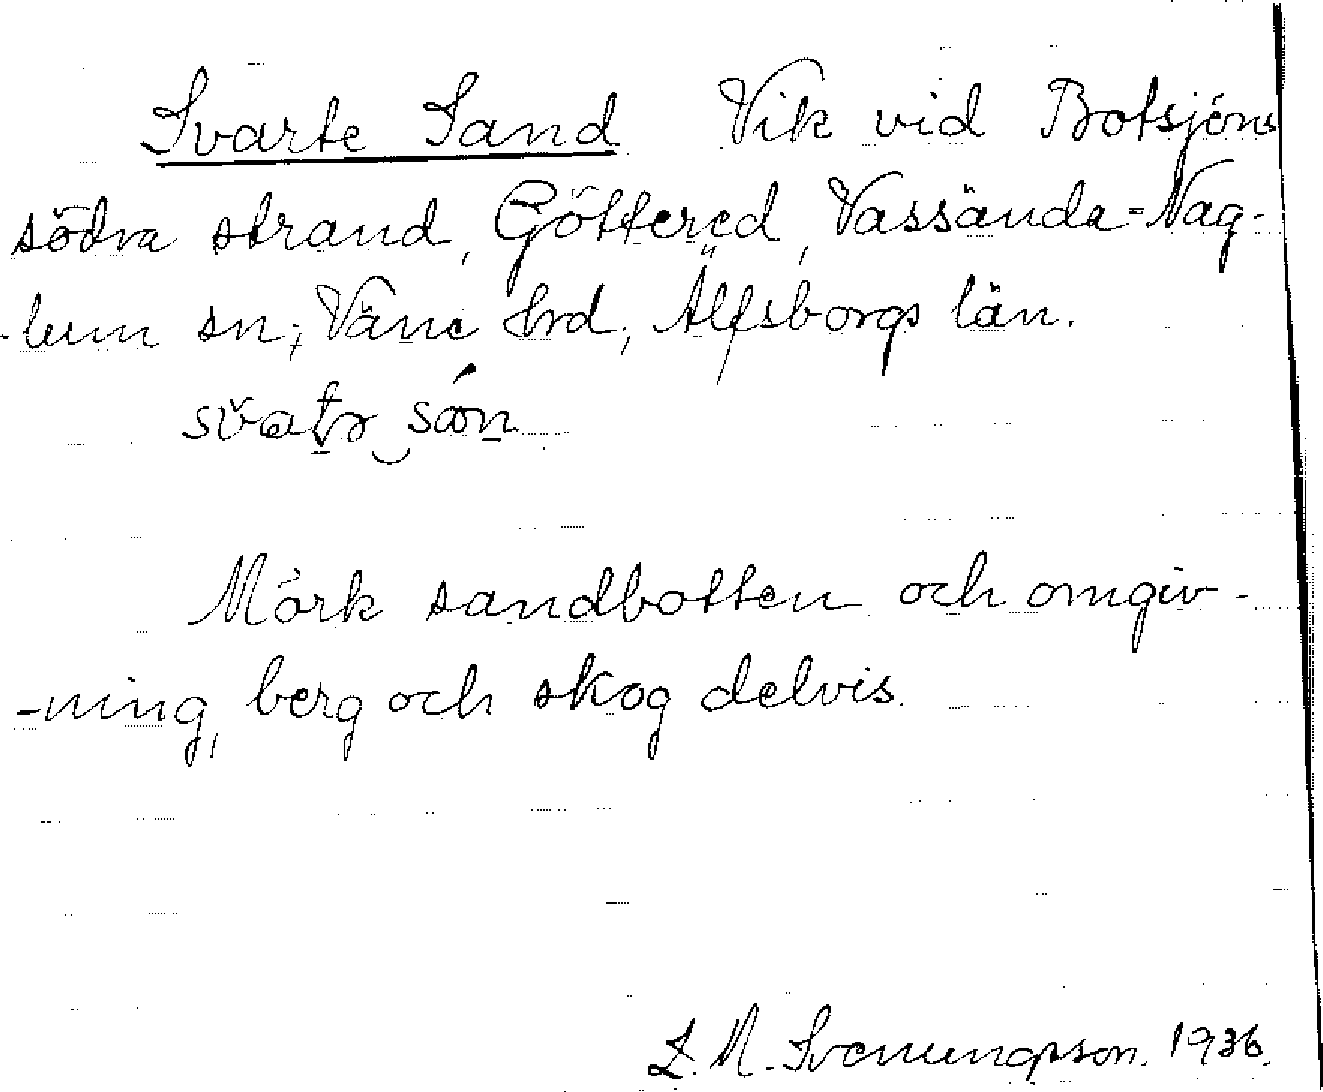 Svarte Sand Vik vid Botsjöns
södra strand, Göttered, Vassända-Nag-
-lum sn, Väne hrd, Älfsborgs län.
Mörk sandbotten och omgiv-
-ning, berg och skog delvis.
L. M. Svenungsson. 1936.